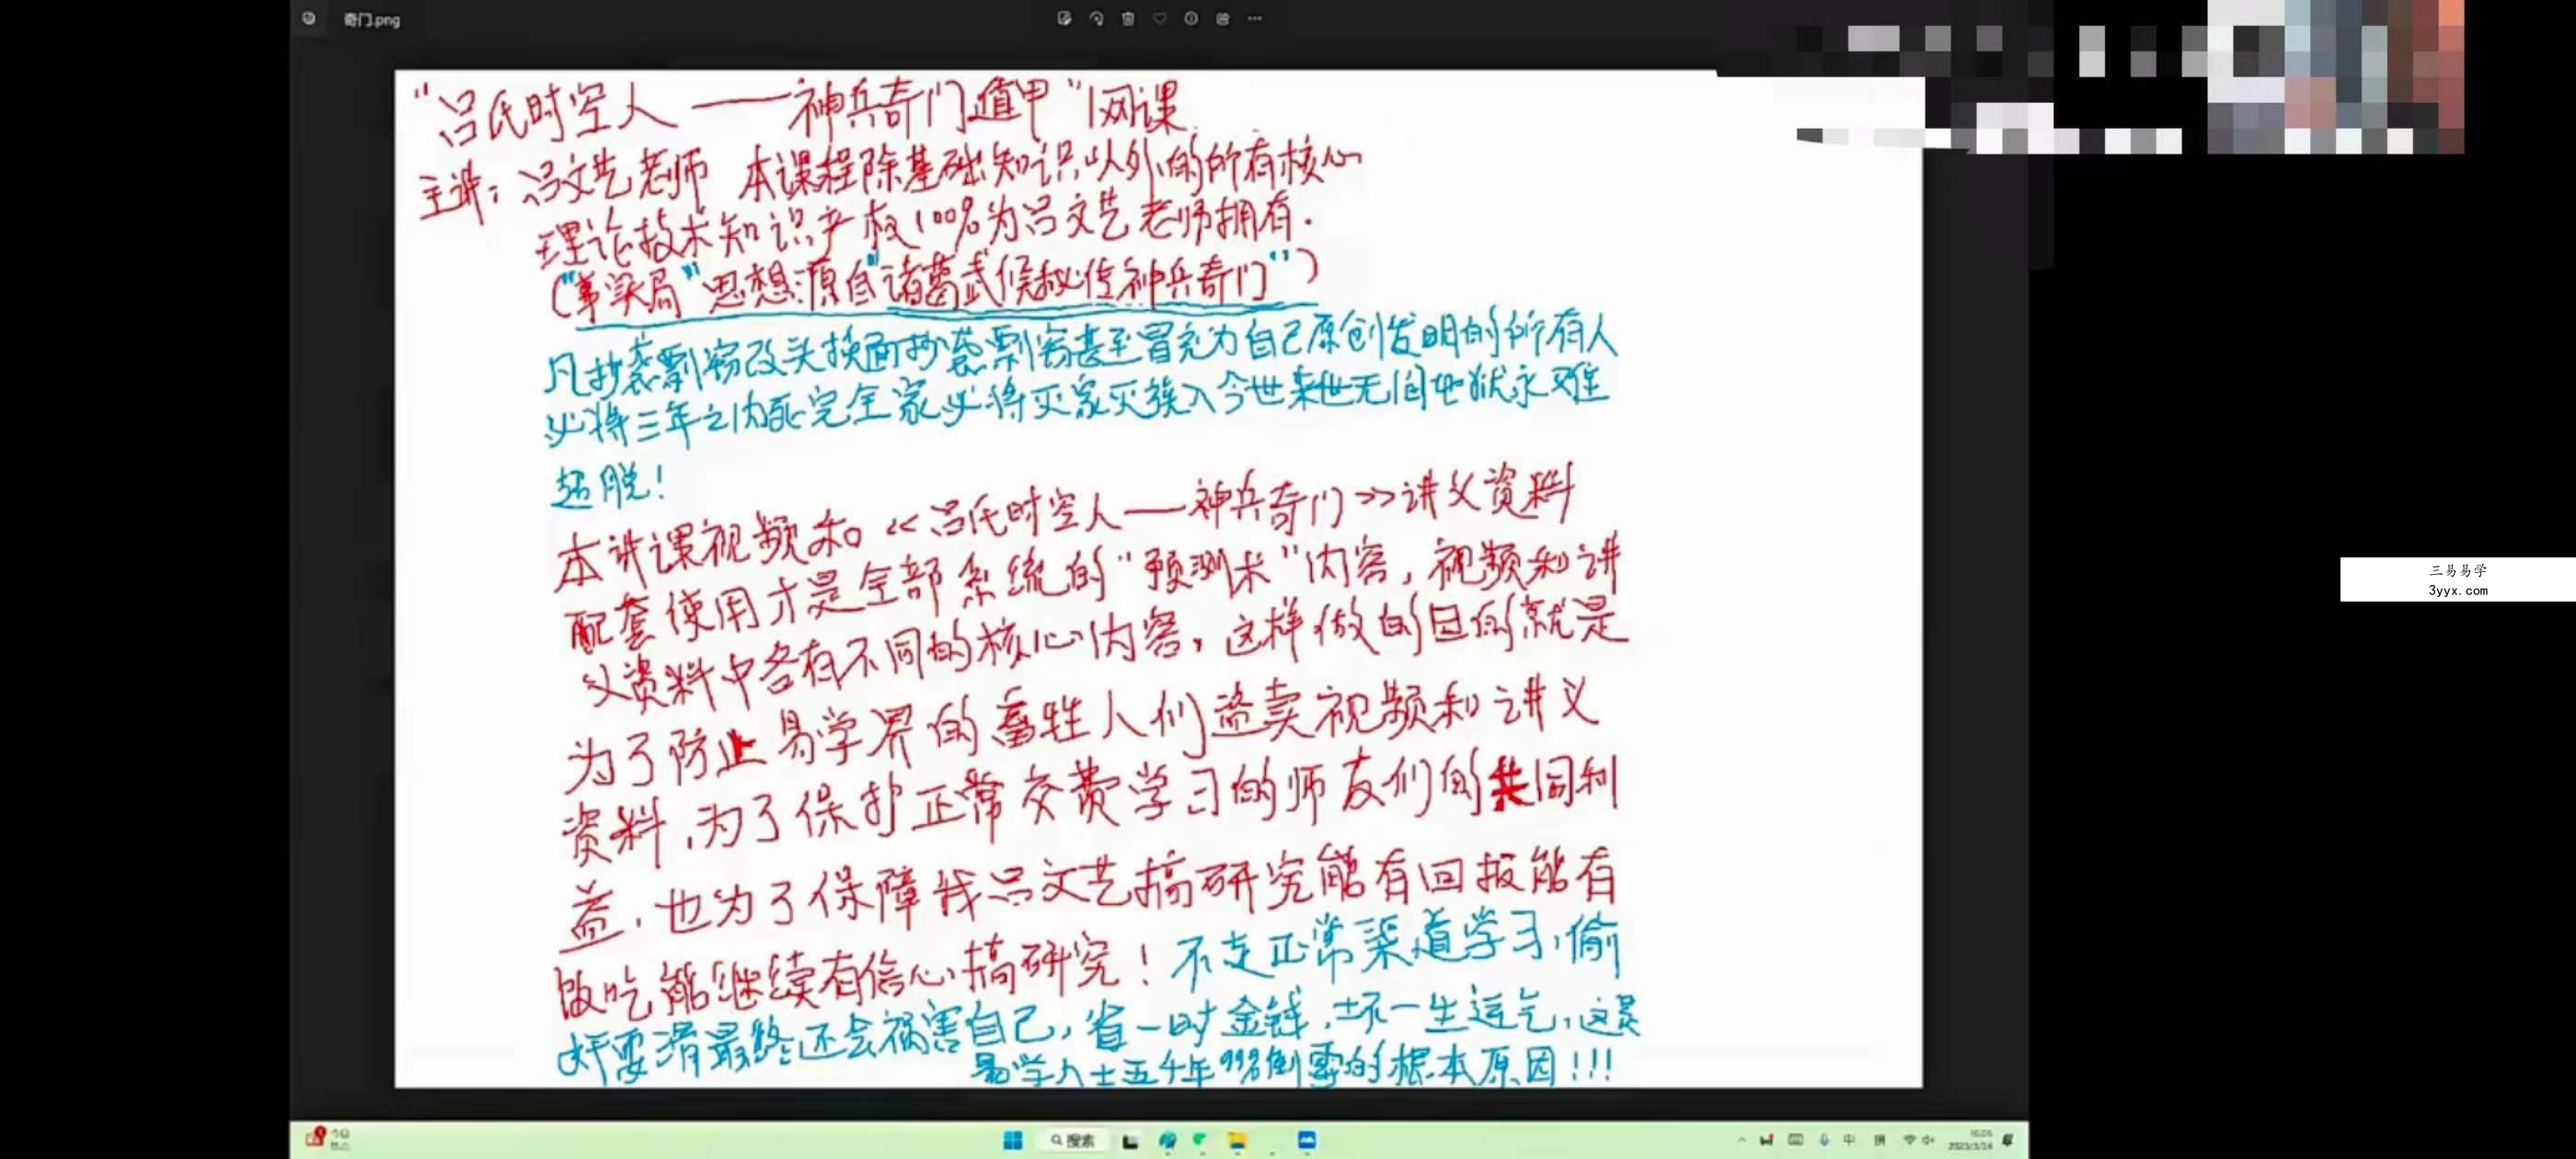 奇门.png
"吕氏时空人——神兵奇门遁甲"网课
主讲：吕文艺老师 本课程除基础知识以外的所有核心
理论技术知识产权100%为吕文艺老师拥有.
("事实局"思想源自"诸葛武候秘传神兵奇门")
凡抄袭剽窃改头换面抄袭剽窃甚至冒充为自己原创发明的所有人
必将三年之内死完全家必将灭家灭族入今世来世无间地狱永难
超脱！
本讲课视频和《吕氏时空人——神兵奇门》讲义资料
配套使用才是全部系统的"预测术"内容，视频和讲
义资料中各有不同的核心内容，这样做的目的就是
为了防止易学界的畜牲人们盗卖视频和讲义
资料，为了保护正常交费学习的师友们的共同利
益，也为了保障我吕文艺搞研究能有回报能有
饭吃能继续有信心搞研究！不走正常渠道学习，偷
奸耍滑最终还会祸害自己，省一时金钱，坏一生运气，这是
易学人士五千年99%倒霉的根本原因！！！
三易易学
3yyx.com
今日
热点
搜索
中
拼
16:05
2023/3/24